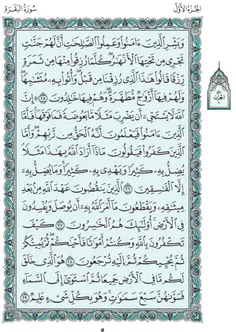 الجزء الأول
سورة البقرة
وَبَشِّرِ الَّذِينَ ءَامَنُوا وَعَمِلُوا الصَّالِحَاتِ أَنَّ لَهُمْ جَنَّاتٍ
تَجْرِي مِن تَحْتِهَا الْأَنْهَارُ كُلَّمَا رُزِقُوا مِنْهَا مِن ثَمَرَةٍ
رِّزْقًا قَالُوا هَٰذَا الَّذِي رُزِقْنَا مِن قَبْلُ وَأُتُوا بِهِ مُتَشَابِهًا
وَلَهُمْ فِيهَا أَزْوَاجٌ مُّطَهَّرَةٌ وَهُمْ فِيهَا خَالِدُونَ ٢٥ إِنَّ
اللَّهَ لَا يَسْتَحْيِي أَن يَضْرِبَ مَثَلًا مَّا بَعُوضَةً فَمَا فَوْقَهَا فَأَمَّا
الَّذِينَ ءَامَنُوا فَيَعْلَمُونَ أَنَّهُ الْحَقُّ مِن رَّبِّهِمْ وَأَمَّا
الَّذِينَ كَفَرُوا فَيَقُولُونَ مَاذَا أَرَادَ اللَّهُ بِهَٰذَا مَثَلًا
يُضِلُّ بِهِ كَثِيرًا وَيَهْدِي بِهِ كَثِيرًا وَمَا يُضِلُّ بِهِ
إِلَّا الْفَاسِقِينَ ٢٦ الَّذِينَ يَنقُضُونَ عَهْدَ اللَّهِ مِن بَعْدِ
مِيثَاقِهِ وَيَقْطَعُونَ مَا أَمَرَ اللَّهُ بِهِ أَن يُوصَلَ وَيُفْسِدُونَ
فِي الْأَرْضِ أُولَٰئِكَ هُمُ الْخَاسِرُونَ ٢٧ كَيْفَ
تَكْفُرُونَ بِاللَّهِ وَكُنتُمْ أَمْوَاتًا فَأَحْيَاكُمْ ثُمَّ يُمِيتُكُمْ
ثُمَّ يُحْيِيكُمْ ثُمَّ إِلَيْهِ تُرْجَعُونَ ٢٨ هُوَ الَّذِي خَلَقَ
لَكُم مَّا فِي الْأَرْضِ جَمِيعًا ثُمَّ اسْتَوَىٰ إِلَى السَّمَاءِ
فَسَوَّاهُنَّ سَبْعَ سَمَاوَاتٍ وَهُوَ بِكُلِّ شَيْءٍ عَلِيمٌ ٢٩
٥